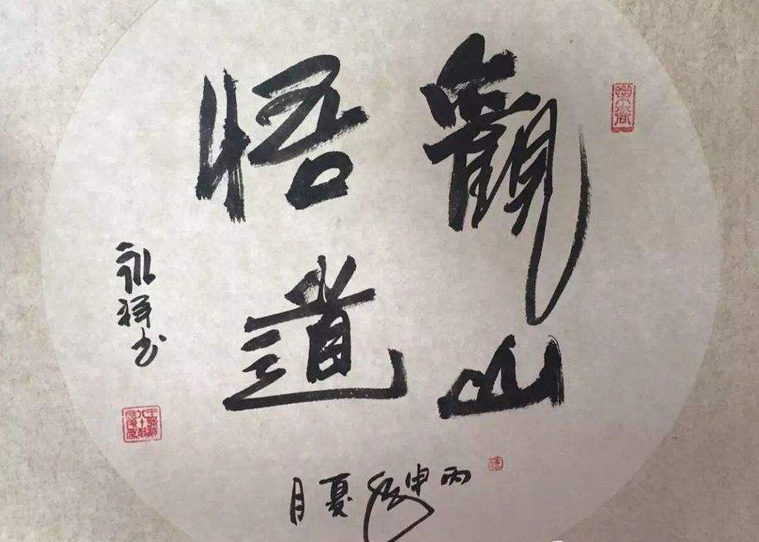 觀山
悟道
丙申
夏月
永祥书